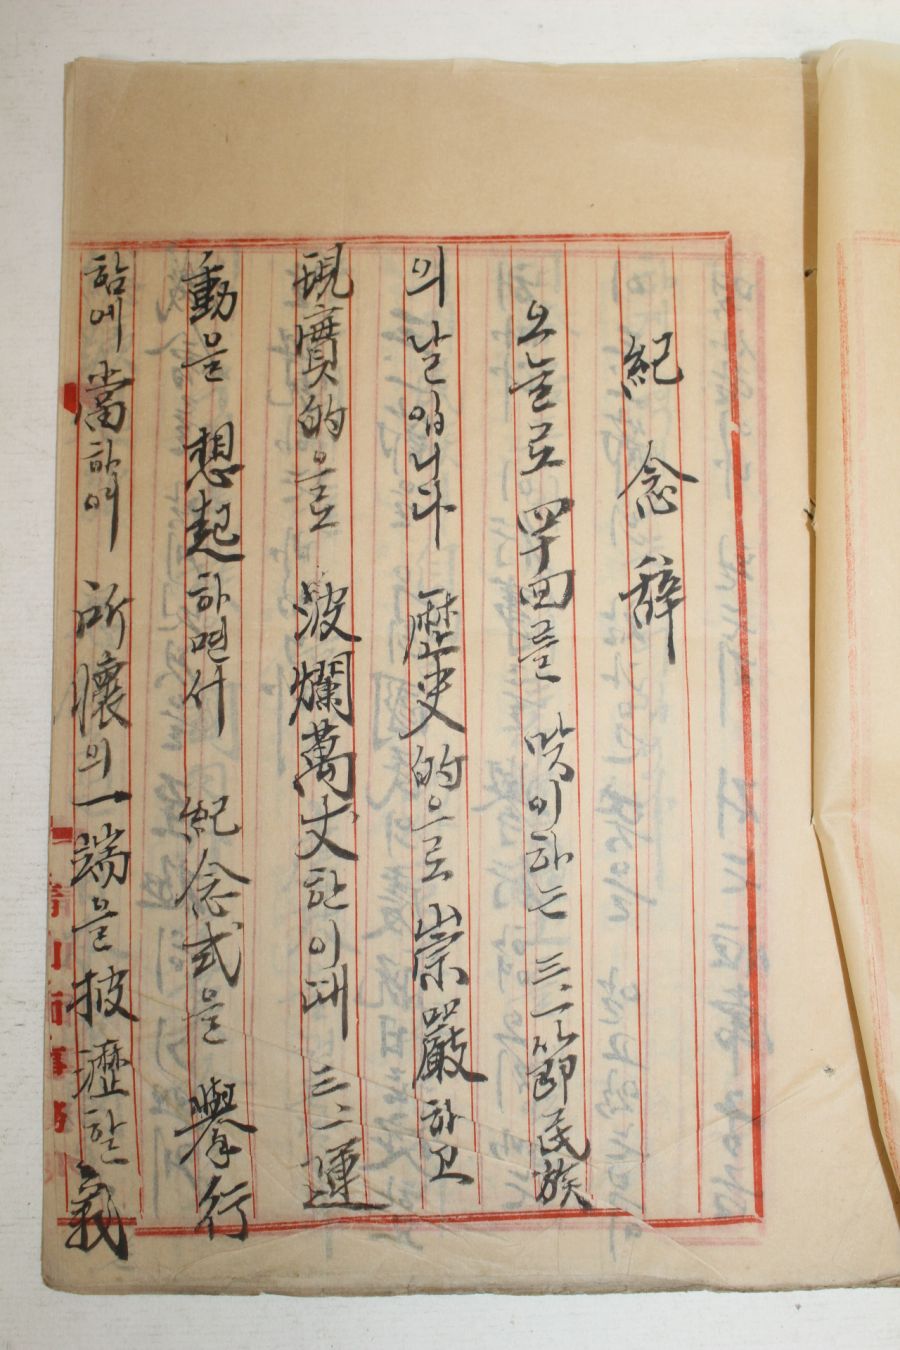 紀念辞
오늘로 四十四回를 맞이하는 三一節 民族
의 날입니다 歷史的으로 崇嚴하고
現實的으로 波爛萬丈한 이때 三一運
動을 想起하면서 紀念式을 擧行
함에 當하여 所懷의 一端을 披瀝할